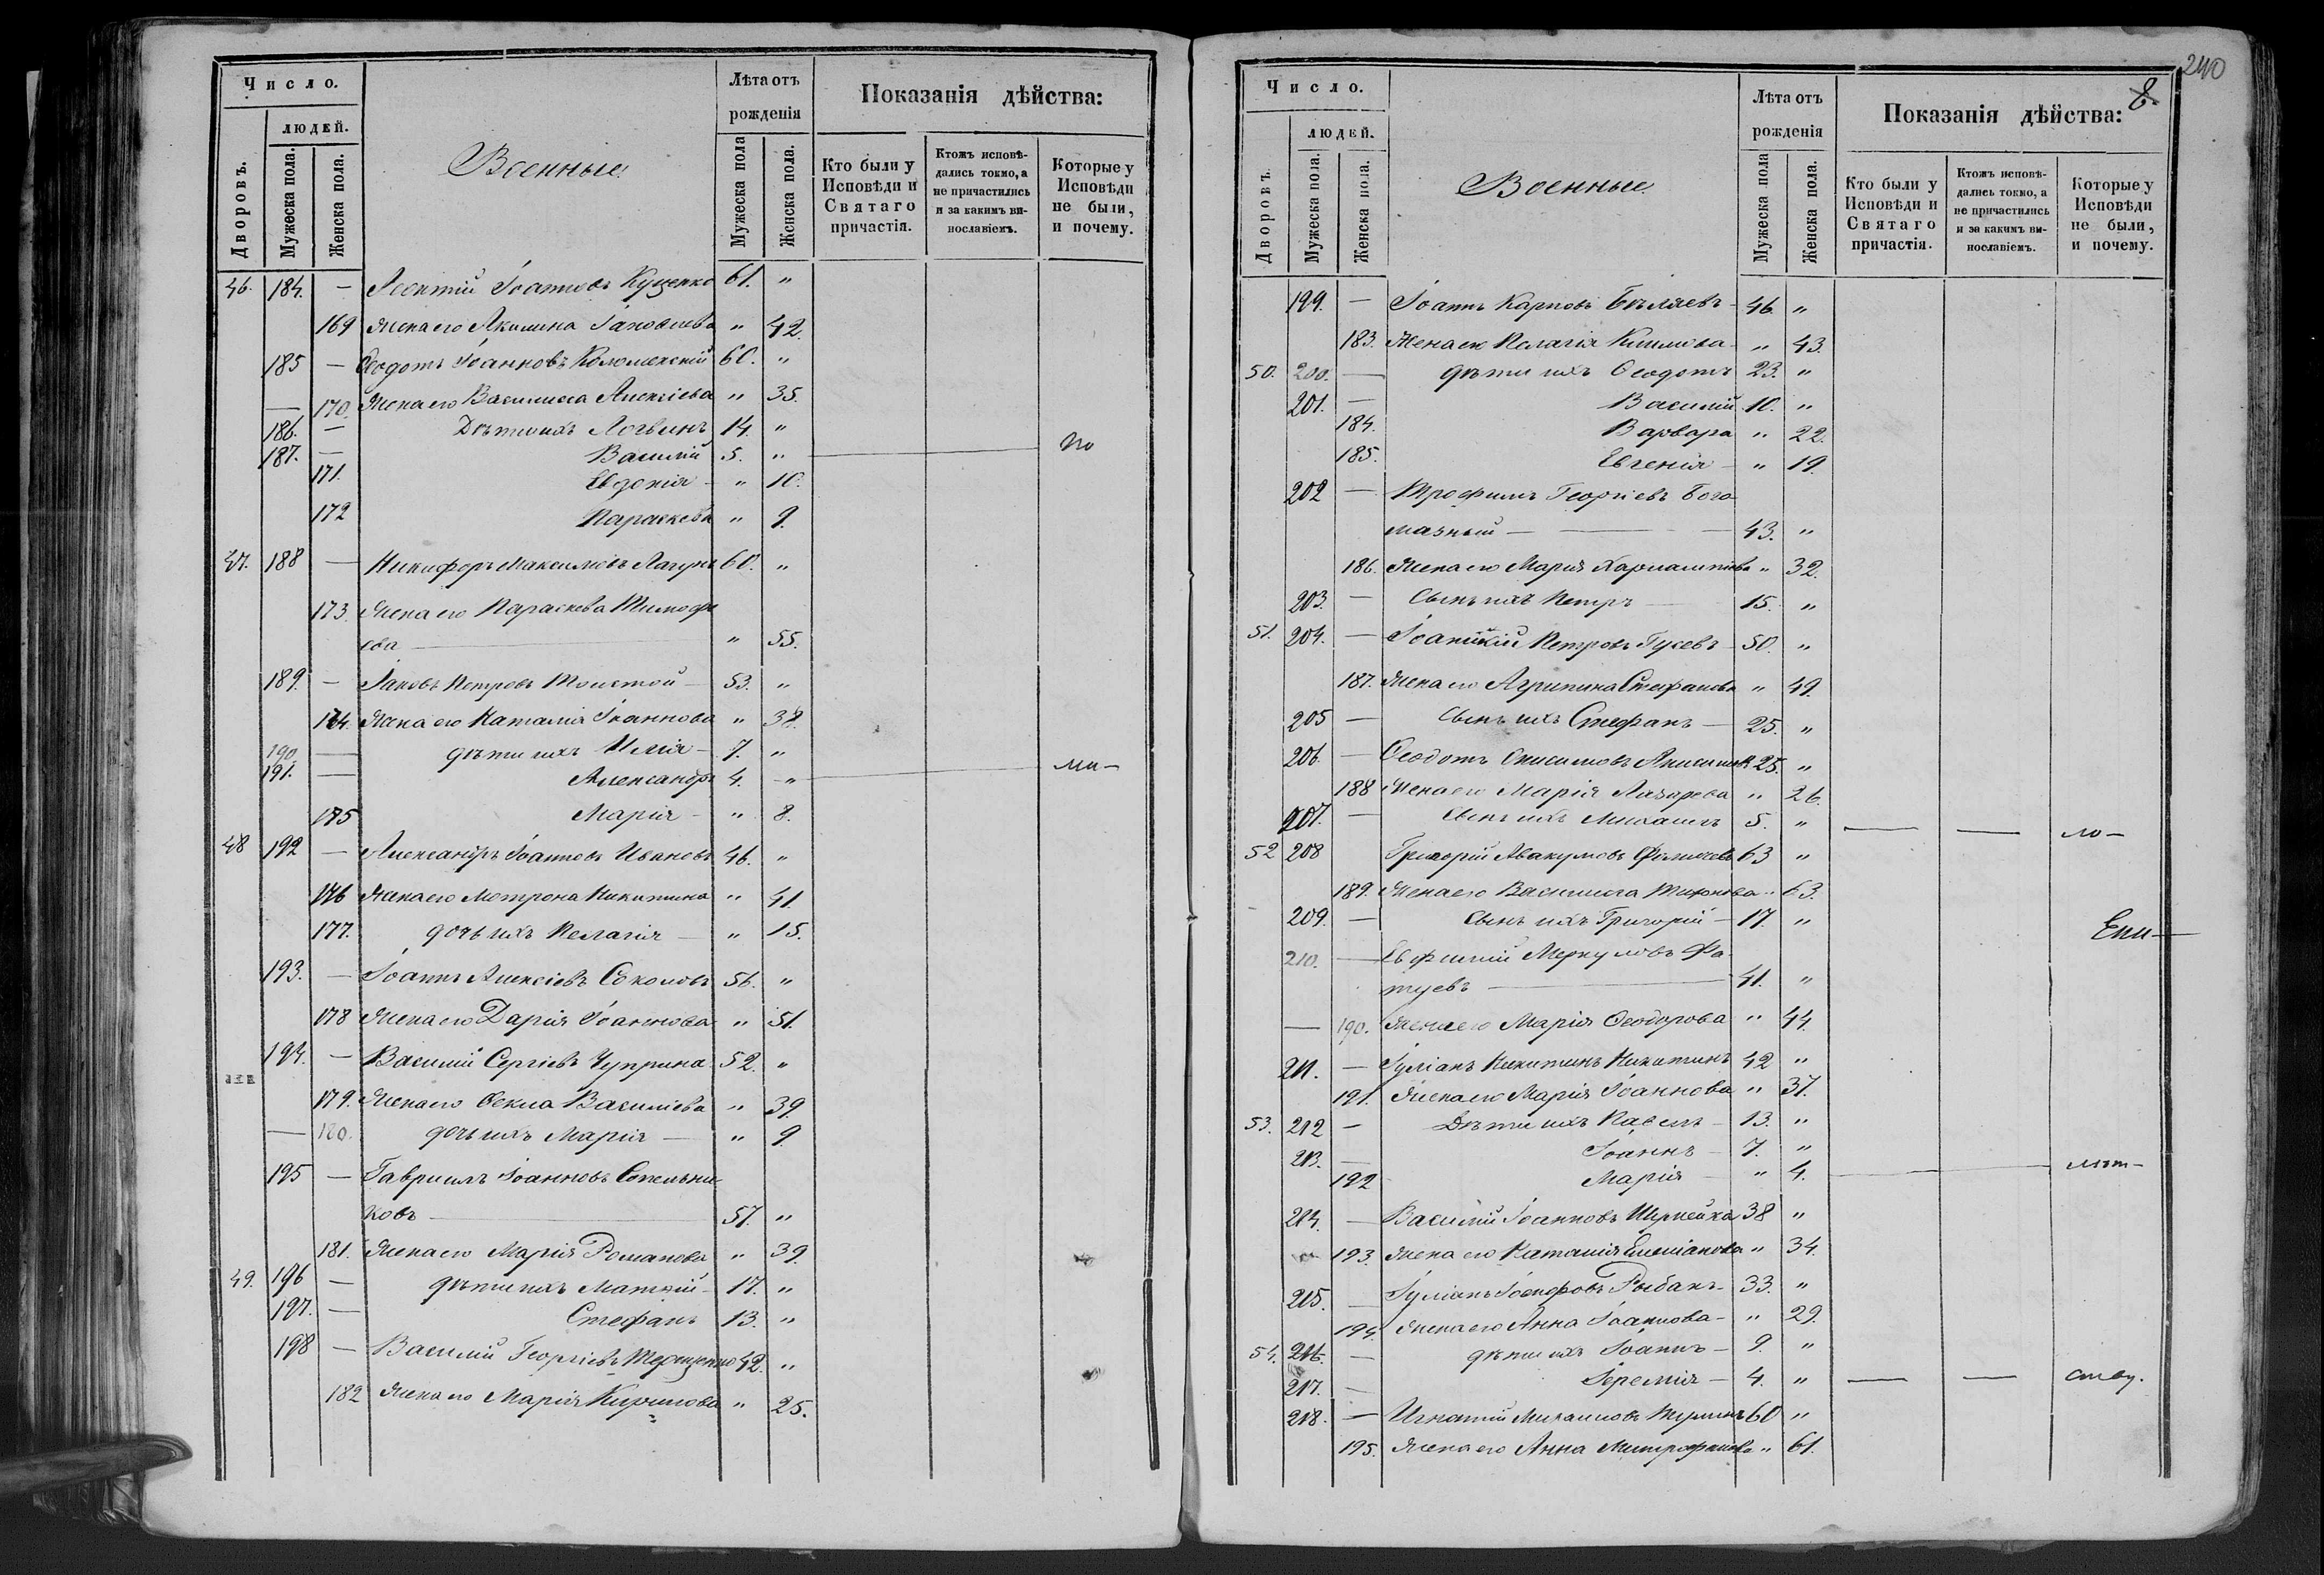 Число.
людей.
Дворовъ.
Мужеска пола.
Женска пола.
Военные.
Лѣта отъ
рожденія
Мужеска пола
Женска пола.
Показанія дѣйства:
Кто были у
Исповѣди и
Святаго
причастія.
Ктожъ исповѣ-
дались токмо, а
не причастились
и за какимъ ви-
нословіемъ.
Которые у
Исповѣди
не были,
и почему.
46. 184. — Леонтій Іоанновъ Куценко 61. "
169 Жена его Акилина Іаковлева " 42.
185 — Ѳеодотъ Іоанновъ Коломенскій 60. "
— 170. Жена его Василисса Алексіева " 35.
186. — Дѣти ихъ Логвинъ 14. "
187. — Василій 5. " по
171. Евдокія - " 10.
172 Параскева " 9.
47. 188 — Никифоръ Максимовъ Лагунъ 60. "
173. Жена его Параскева Тимофе
ева — " 55.
189. — Іаковъ Петровъ Толстой - 53. "
174. Жена его Наталія Іоаннова "
190. — дѣти ихъ Илія - 7. "
191. — Александръ 4. " ма-
175 Марія - " 8.
48 192 — Александръ Іоанновъ Ивановъ 46. "
176 Жена его Мотрона Никитина " 41.
177. дочь ихъ Пелагія — " 15.
193. — Іоаннъ Алексіевъ Соколовъ 56. "
178 Жена его Дарія Іоаннова " 51.
194. — Василій Сергіевъ Чуприна 52. "
179. Жена его Ѳекла Василіева " 39.
— 180. дочь ихъ Марія — " 9.
195 — Гавриилъ Іоанновъ Сотельни-
ковъ — 57. "
181. Жена его Марія Романова " 39.
49. 196 — дѣти ихъ Матѳій - 17. "
197. — Стефанъ 13. "
198 — Василій Георгіевъ Терещенко 42. "
182 Жена его Марія Кирилова " 25.
240
8.
Число.
людей.
Дворовъ.
Мужеска пола.
Женска пола.
Военные
Лѣта отъ
рожденія
Мужеска пола
Женска пола.
Показанія дѣйства:
Кто были у
Исповѣди и
Святаго
причастія.
Ктожъ исповѣ-
дались токмо, а
не причастились
и за какимъ ви-
нословіемъ.
Которые у
Исповѣди
не были,
и почему.
199. — Іоаннъ Карповъ Бѣляевъ - 46. "
183. Жена его Пелагія Климова " 43.
50. 200. — дѣти ихъ Ѳеодотъ 23. "
201. — Василій 10. "
184. Варвара " 22.
185. Евгенія - " 19.
202 — Трофимъ Георгіевъ Бога
мазный — 43. "
186. Жена его Марія Харлампіева " 32.
203. — Сынъ ихъ Петръ — 15. "
51. 204. — Петровъ Гусевъ - 50. "
187. Жена его Агрипина Стефанова " 49.
205 — Сынъ ихъ Стефанъ — 25. "
206. — Ѳеодотъ Онисимовъ Анисимовъ 25. "
188 Жена его Марія Лазарева " 26.
207. — Сынъ ихъ Михаилъ 5. " — — ло-
52 208 Григорій Авакумовъ 63 "
189. Жена его Василисса Тихонова " 63.
209. — Сынъ ихъ Григорій - 17. "
Епи-
210. — Евфимій Меркуловъ Фа
туевъ — 41. "
— 190. Жена его Марія Ѳеодорова " 44.
211. — Іуліанъ Никитинъ Никитинъ 42 "
191. Жена его Марія Іоаннова " 37.
53. 212 — Дѣти ихъ Павелъ - 13. "
213. — Іоаннъ - 7. "
192 Марія - " 4. лѣт-
214. — Василій Іоанновъ Шулейка 38 "
193. Жена его Наталія Емеліанова " 34.
215. — Іуліанъ Іосифовъ Рыбакъ - 33. "
194. Жена его Анна Іоаннова - " 29.
54. 216. — дѣти ихъ Іоаннъ - 9. "
217. — Іеремія - 4. " — — ству.
218. — Игнатій Михаиловъ 60 "
195. Жена его Анна Митрофанова " 61.